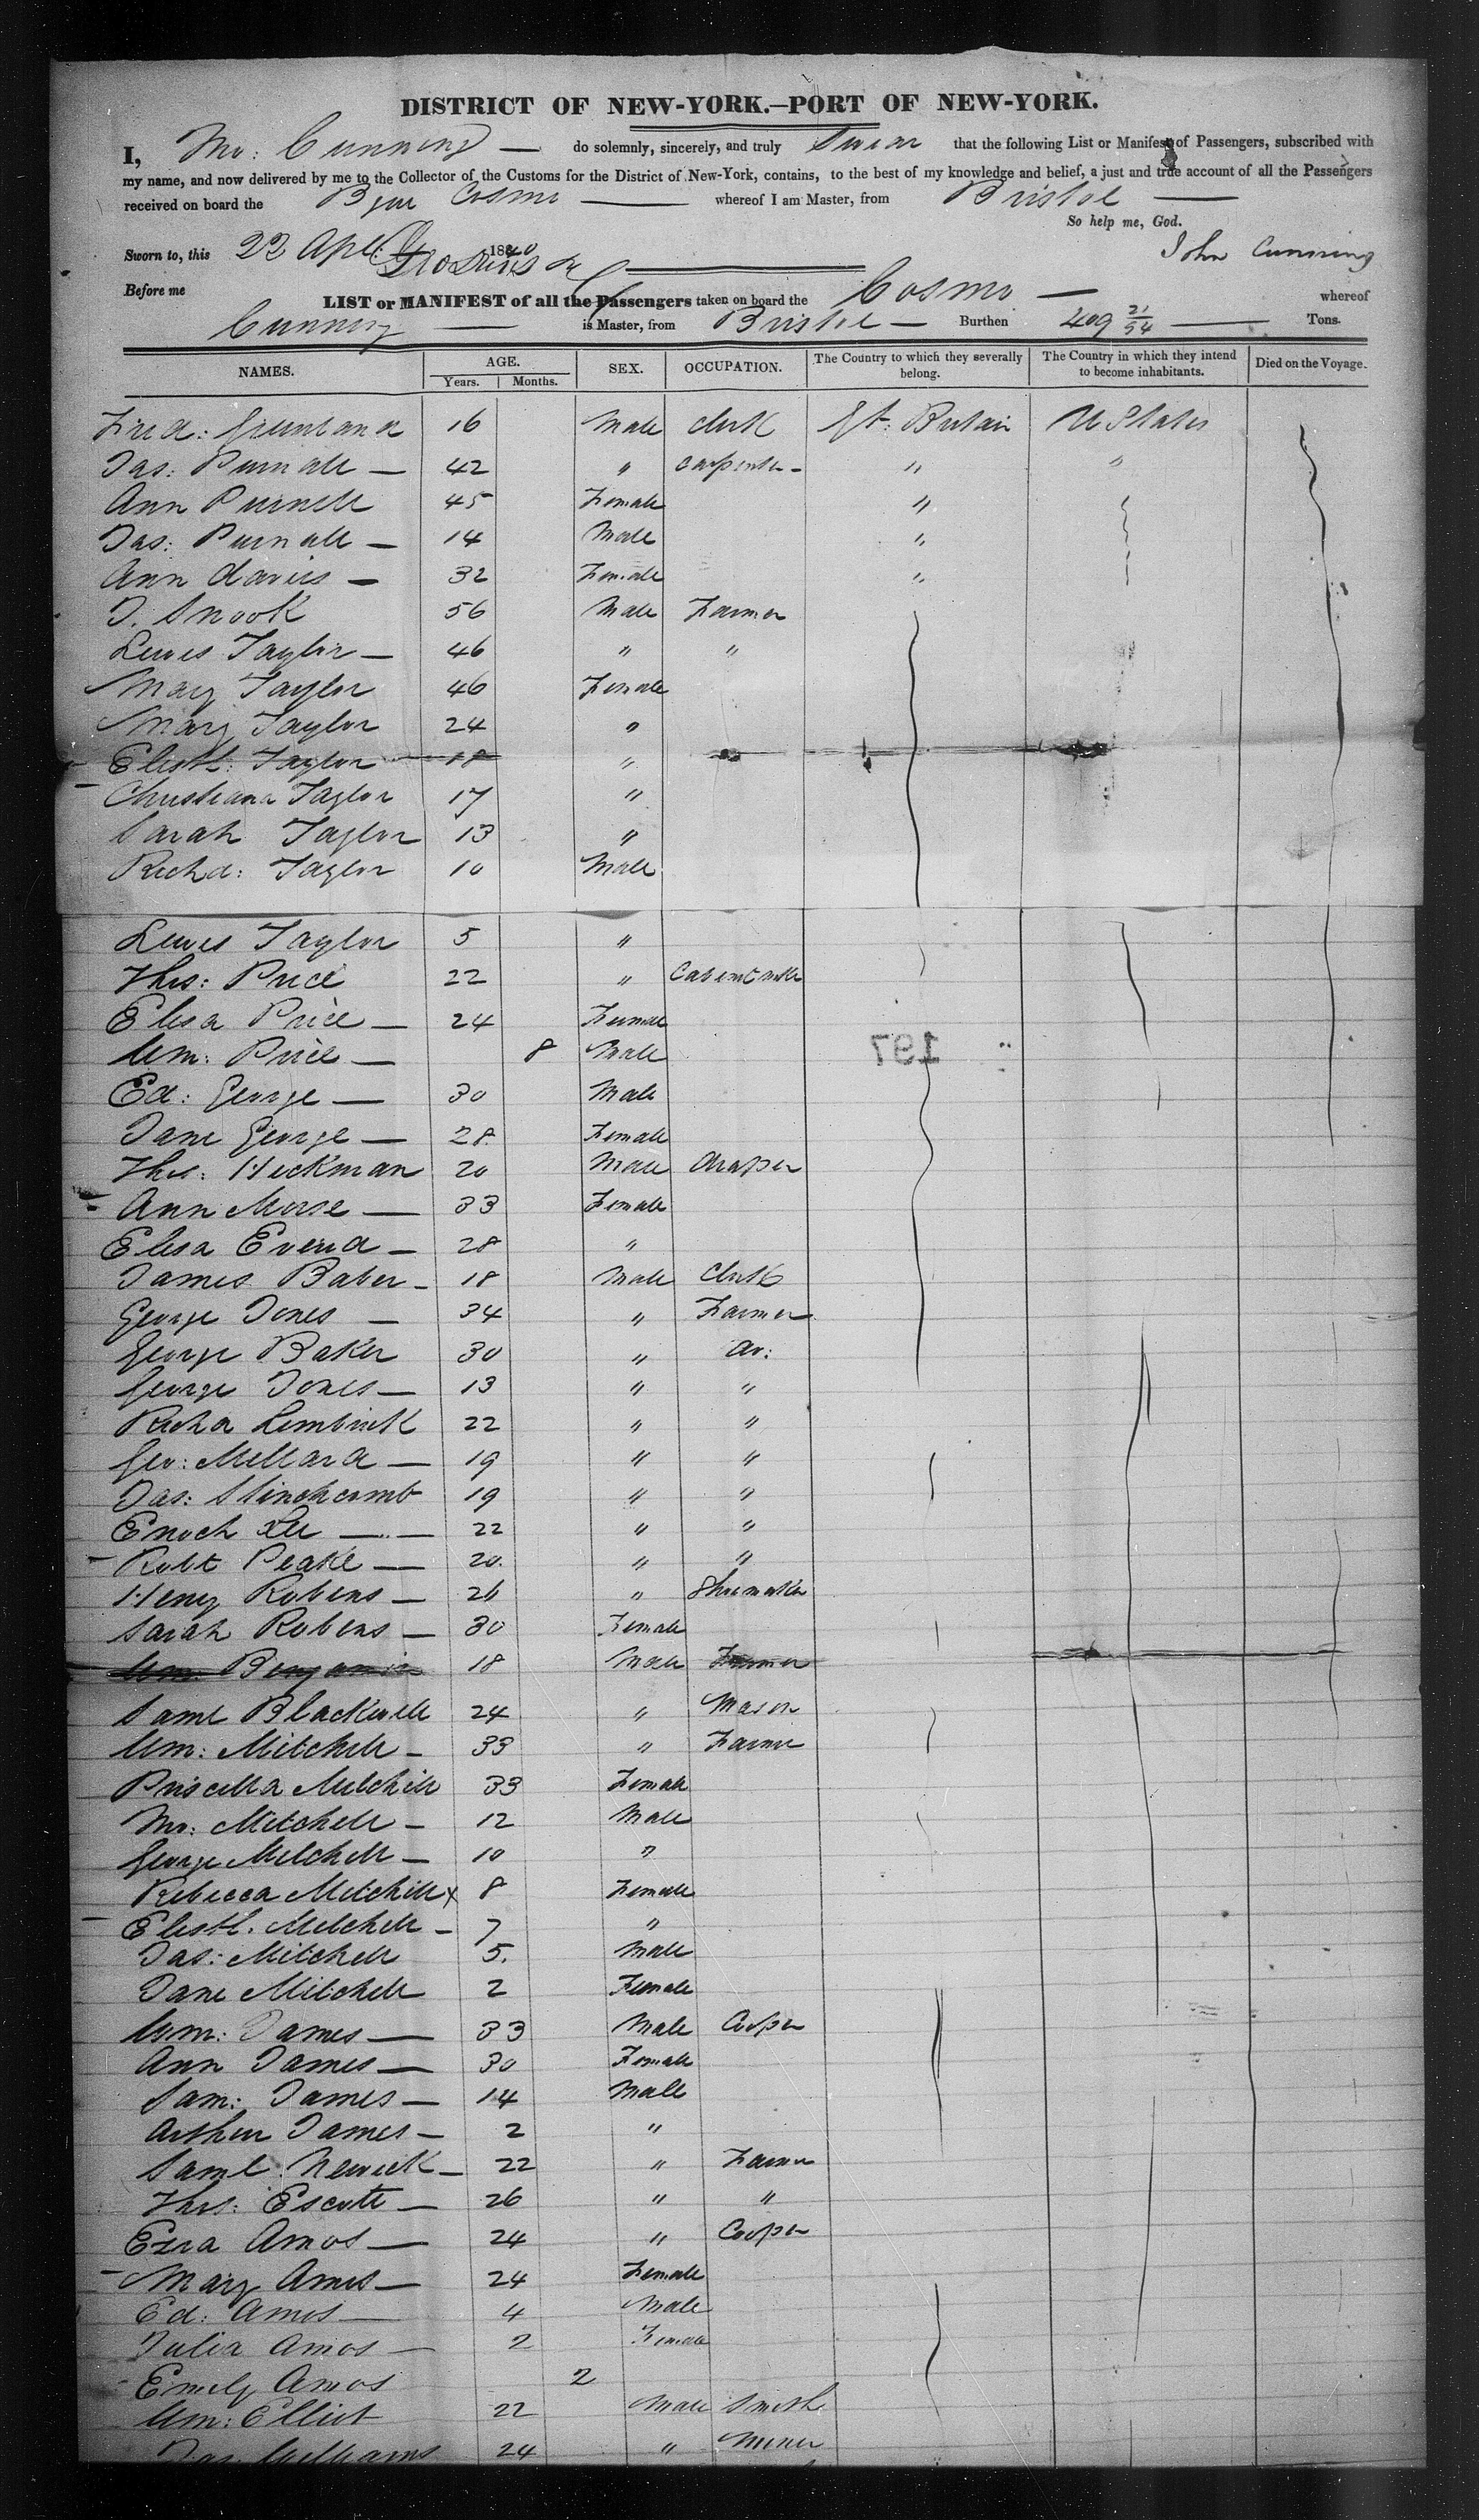 DISTRICT OF NEW-YORK.—PORT OF NEW-YORK.
I, Jno: Cunning — do solemnly, sincerely, and truly Swear that the following List or Manifest of Passengers, subscribed with
my name, and now delivered by me to the Collector of the Customs for the District of New-York, contains, to the best of my knowledge and belief, a just and true account of all the Passengers
received on board the Cosmo — whereof I am Master, from Bristol —
So help me, God.
Sworn to, this 22 Apl 1840 John Cunning
Before me
LIST or MANIFEST of all the Passengers taken on board the Cosmo — whereof
Cunning — is Master, from Bristol — Burthen 409 21/94 — Tons.
NAMES. AGE. Years. Months. SEX. OCCUPATION. The Country to which they severally belong. The Country in which they intend to become inhabitants. Died on the Voyage.
Fred: Greenland 16 Male Clerk Gt: Britain U States
Jas: Purnell — 42 " Carpenter - " "
Ann Purnell 45 Female "
Jas: Purnell — 14 Male "
Ann Davis — 32 Female "
J. Snook 56 Male Farmer
Lewis Taylor — 46 " "
Mary Taylor 46 Female
Mary Taylor 24 "
Elisth: Taylor 18 "
Christiana Taylor 17 "
Sarah Taylor 13 "
Richd: Taylor 10 Male
Lewis Taylor 5 "
Thos: Price 22 " Cabinet mkr
Elisa Price — 24 Female
Wm: Price — 8 Male
197
Ed: George — 30 Male
Jane George — 28 Female
Thos: Heckman 20 Male draper
Ann Morse — 33 Female
Elisa Evend — 28 "
James Baber - 18 Male Clerk
George Jones — 34 " Farmer
George Baker 30 " do:
George Jones — 13 " "
Richd Limbrick 22 " "
Geo: Millard — 19 " "
Jas: Stinchcomb 19 " "
Enoch Lee — 22 " "
Robt Peake — 20 " "
Henry Robens — 26 " Shoemaker
Sarah Robens — 30 Female
Wm: Benjamin 18 Male Farmer
Saml Blackwell 24 " Mason
Wm: Mitchell - 33 " Farmer
Priscilla Mitchell 33 Female
Jno: Mitchell - 12 Male
George Mitchell — 10 "
Rebecca Mitchell x 8 Female
Elisth. Mitchell - 7 "
Jas: Mitchell 5. Male
Jane Mitchell 2 Female
Wm: James — 33 Male Cooper
Ann James — 30 Female
Sam: James — 14 Male
Arthur James — 2 "
Saml: Newick — 22 " Farmer
Thos: Escott — 26 " "
Ezra Amos — 24 " Cooper
Mary Amos — 24 Female
Ed: Amos — 4 Male
Julia Amos — 2 Female
Emily Amos 2
Wm: Elliot 22 Male Smith
Jas: Williams 24 " Miner